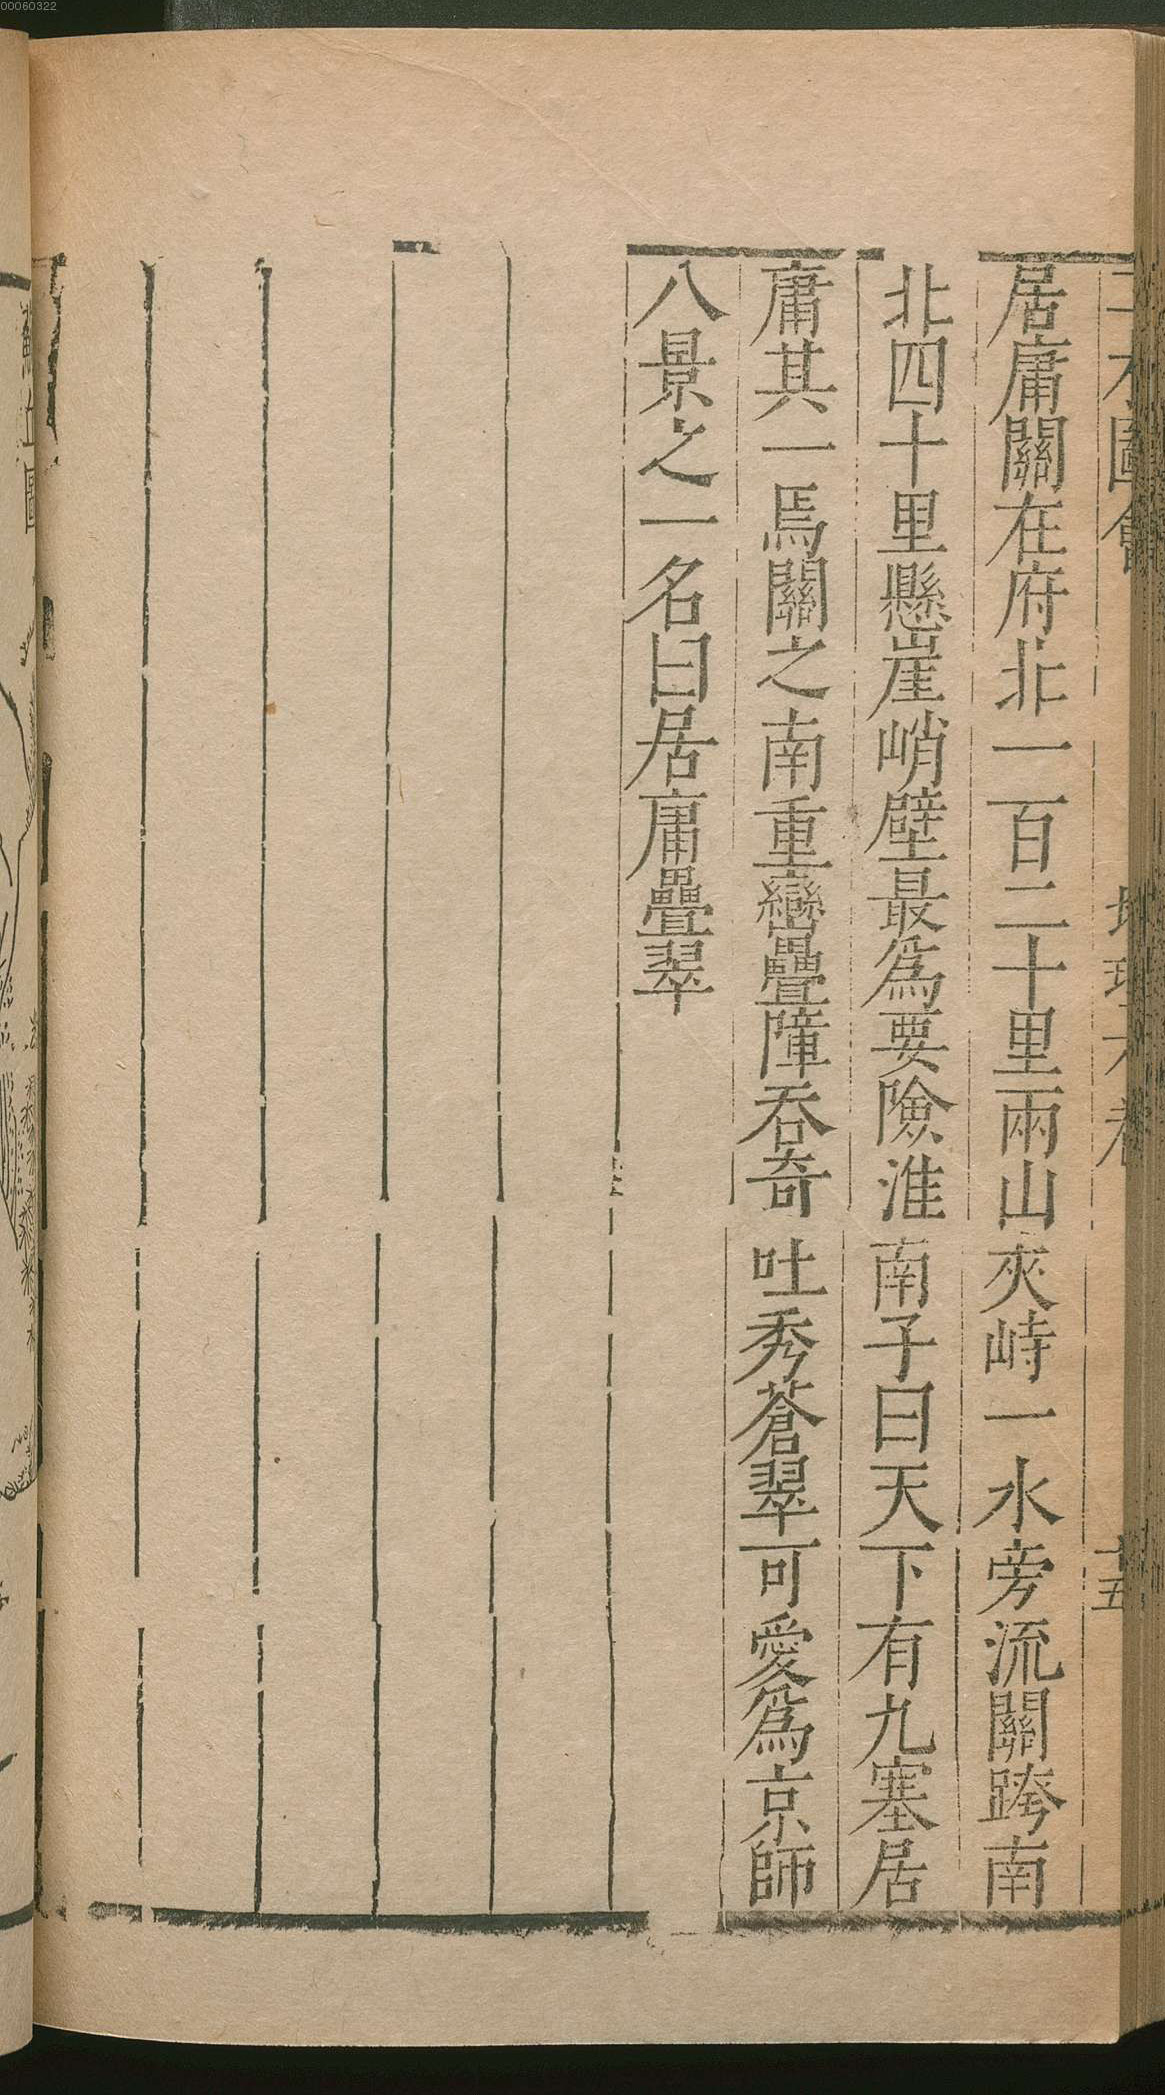 00060322
居庸關在府北一百二十里兩山夾峙一水旁流關跨南
北四十里懸崖峭壁最爲要險淮南子曰天下有九塞居
庸其一焉關之南重巒疊障吞奇吐秀蒼翠可愛爲京師
八景之一名曰居庸疊翠